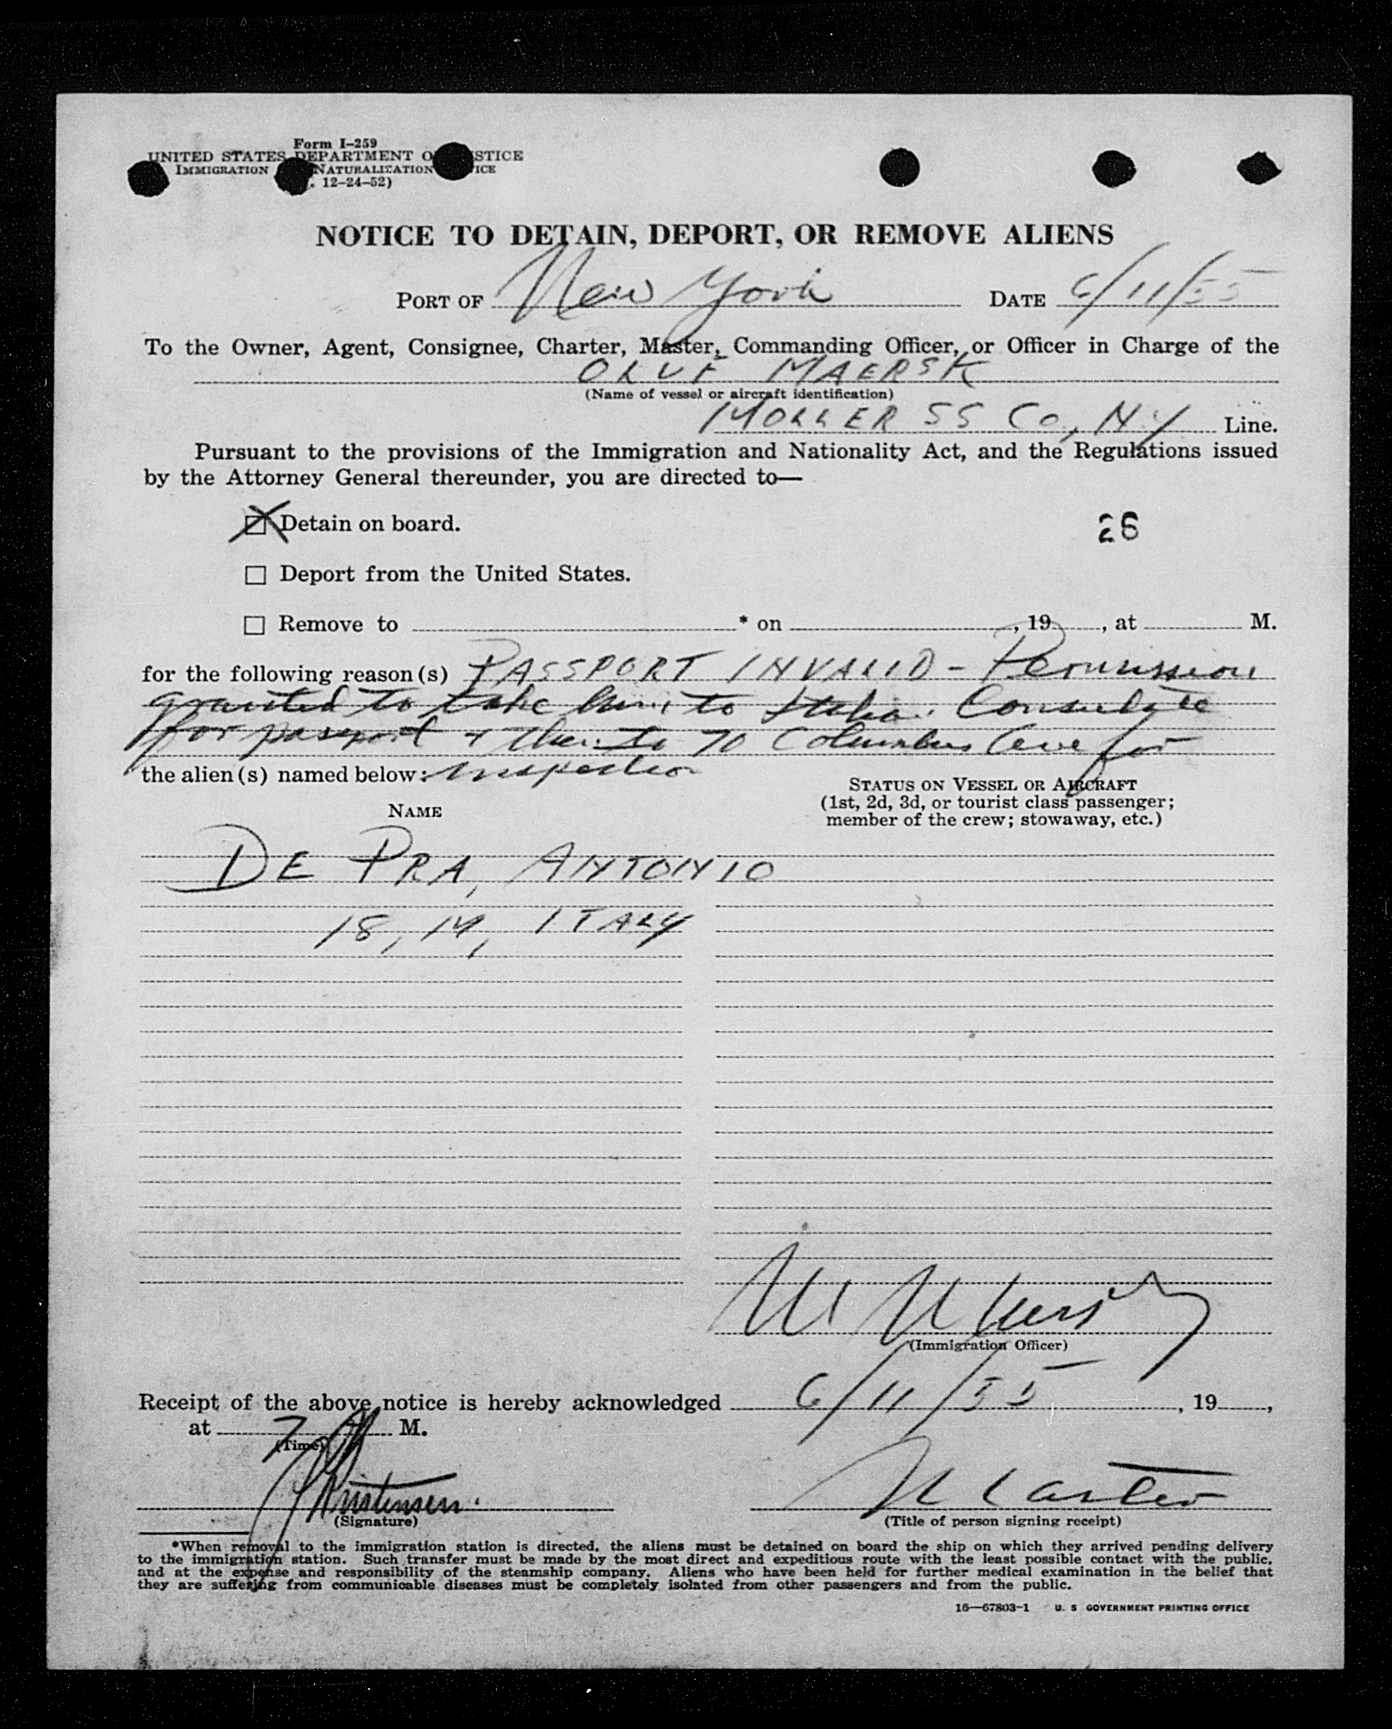 Form I-259
UNITED STATES DEPARTMENT O STICE
IMMIGRATION NATURALIZATION ICE
. 12-24-52)
NOTICE TO DETAIN, DEPORT, OR REMOVE ALIENS
PORT OF New York DATE 6/11/55
To the Owner, Agent, Consignee, Charter, Master, Commanding Officer, or Officer in Charge of the
OLUF MAERSK
(Name of vessel or aircraft identification)
MOLLER SS Co, NY Line.
Pursuant to the provisions of the Immigration and Nationality Act, and the Regulations issued
by the Attorney General thereunder, you are directed to—
Detain on board.
26
Deport from the United States.
Remove to * on , 19 , at M.
for the following reason(s) PASSPORT INVALID - Permission
granted to take him to Italia. Consulate
for passport + then to 70 Columbus Ave for
the alien(s) named below: inspection
NAME
STATUS ON VESSEL OR AIRCRAFT
(1st, 2d, 3d, or tourist class passenger;
member of the crew; stowaway, etc.)
DE PRA, ANTONIO
18, M, ITALY
(Immigration Officer)
Receipt of the above notice is hereby acknowledged 6/11/55 , 19 ,
at 7 M.
(Time)
Kristensen.
(Signature)
Master
(Title of person signing receipt)
*When removal to the immigration station is directed, the aliens must be detained on board the ship on which they arrived pending delivery
to the immigration station. Such transfer must be made by the most direct and expeditious route with the least possible contact with the public,
and at the expense and responsibility of the steamship company. Aliens who have been held for further medical examination in the belief that
they are suffering from communicable diseases must be completely isolated from other passengers and from the public.
16—67803-1 U. S GOVERNMENT PRINTING OFFICE